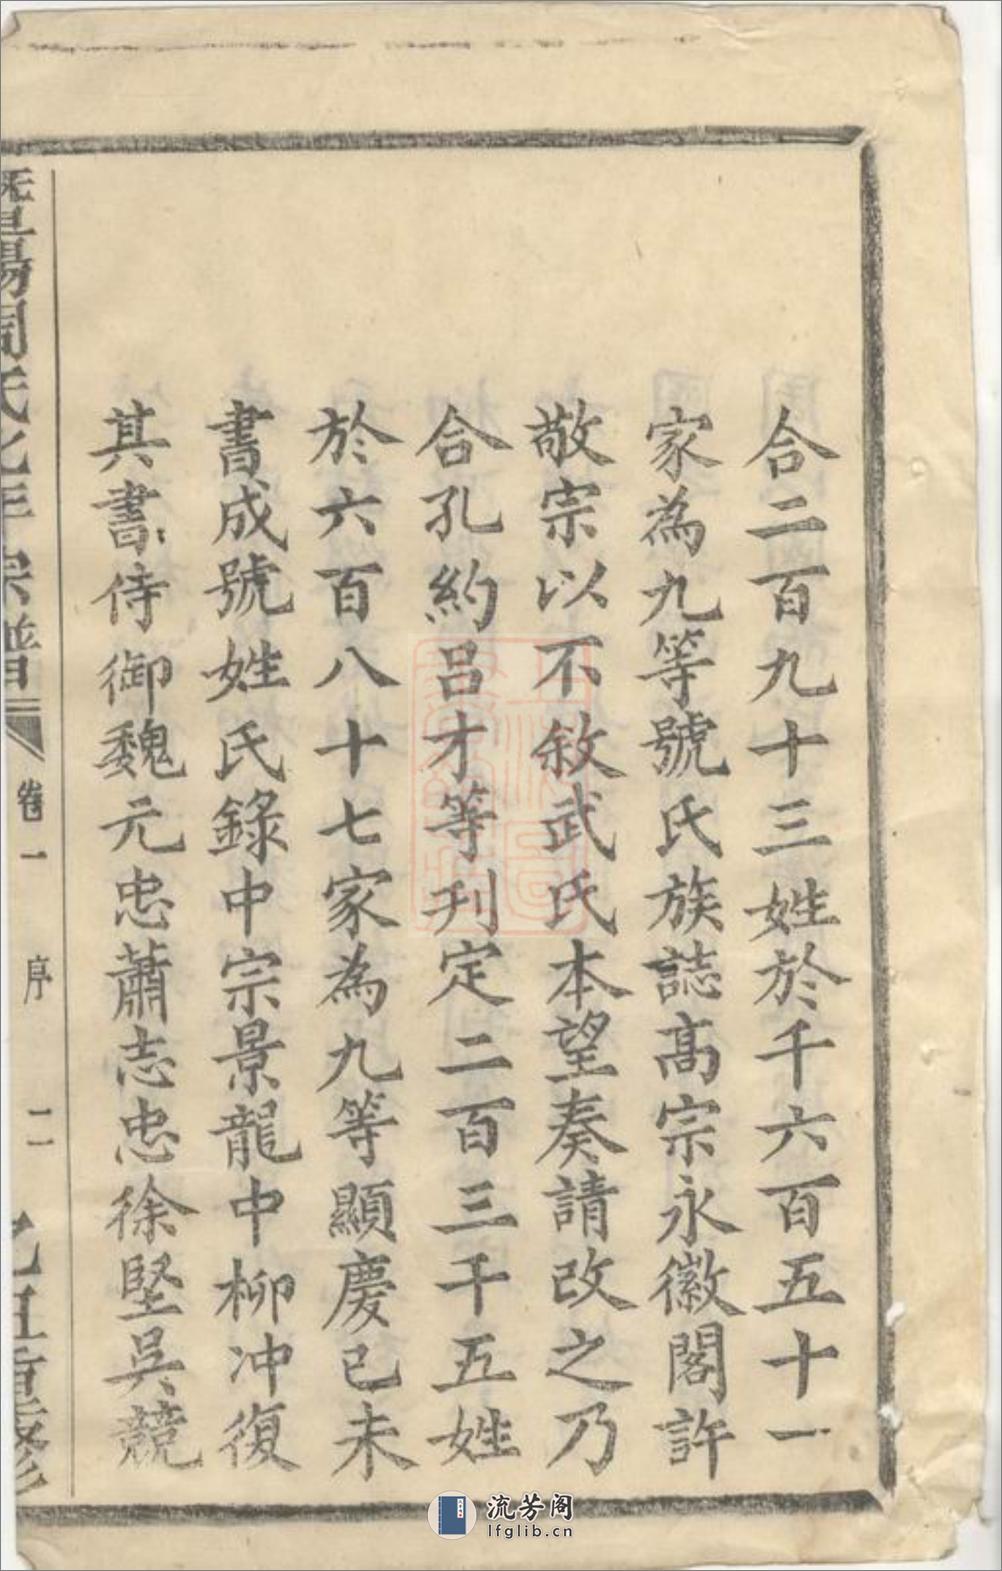 合二百九十三姓於千六百五十一
家為九等號氏族誌髙宗永徽閣許
敬宗以不敘武氏本望奏請改之乃
合孔約呂才等刋定二百三千五姓
於六百八十七家為九等顯慶已未
書成號姓氏錄中宗景龍中柳冲復
其書侍御魏元忠蕭志忠徐堅吳競
暨陽周氏乙年宗譜
卷一
序
二
重修
流芳阁
lfglib.cn